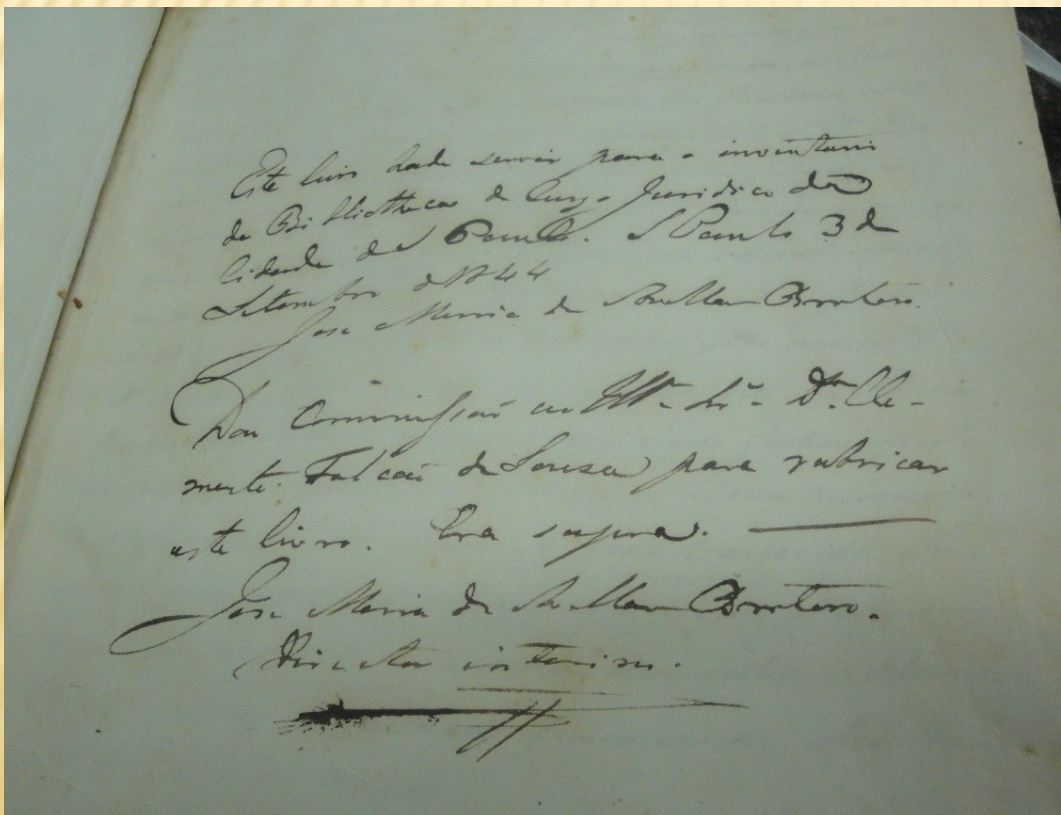 Este livro hade servir para o inventario
da Bibliotheca do Curso Juridico da
Cidade de S Paulo. S Paulo 3 de
Setembro d 1844
Jose Maria de Avellar Brotero.
Dou Commissaõ ao Illmo Snr. Dr. Cle-
mente Falcaõ de Sousa para rubricar
este livro. Era supra.
Jose Maria de Avellar Brotero.
Director interino.